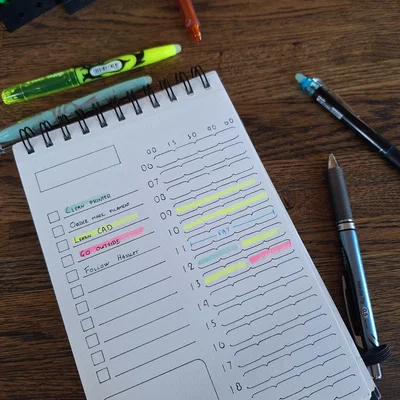 CLEAN PRINTER
ORDER MORE FILAMENT
LEARN CAD
GO OUTSIDE
FOLLOW
00 15 30
06
07
08
09
10
11
12
13
14
15
16
17
18